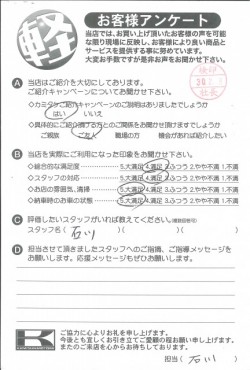 軽
お客様アンケート
当店では、お買い上げ頂いたお客様の声を可能
な限り現場に反映し、お客様により良い商品と
サービスを提供する事に努めています。
大変お手数ですが是非お声をお聞かせ下さい。
A 当店はご紹介を大切にしております。
ご紹介キャンペーンについてお聞かせ下さい。
社長
はい いいえ
ご親戚 ご友人 職場の方 機会があれば紹介したい
B 当店を実際にご利用になった印象をお聞かせ下さい。
◇総合的な満足度 5.大満足 4.満足 3.ふつう 2.やや不満 1.不満
◇スタッフの対応 5.大満足 4.満足 3.ふつう 2.やや不満 1.不満
◇お店の雰囲気、清掃 5.大満足 4.満足 3.ふつう 2.やや不満 1.不満
◇納車時のお車の状態 5.大満足 4.満足 3.ふつう 2.やや不満 1.不満
C 評価したいスタッフがいれば教えてください。(複数回答可)
スタッフ名( 石川 )
D 担当させて頂きましたスタッフへのご指摘、ご指導メッセージを
お願いします。応援メッセージもぜひお願いします。
K
ご協力に心よりお礼を申し上げます。
今後とも宜しくお引き立てご愛顧の程お願い申し上げます。
またのご来店を心からお待ちしております。
担当( 石川 )